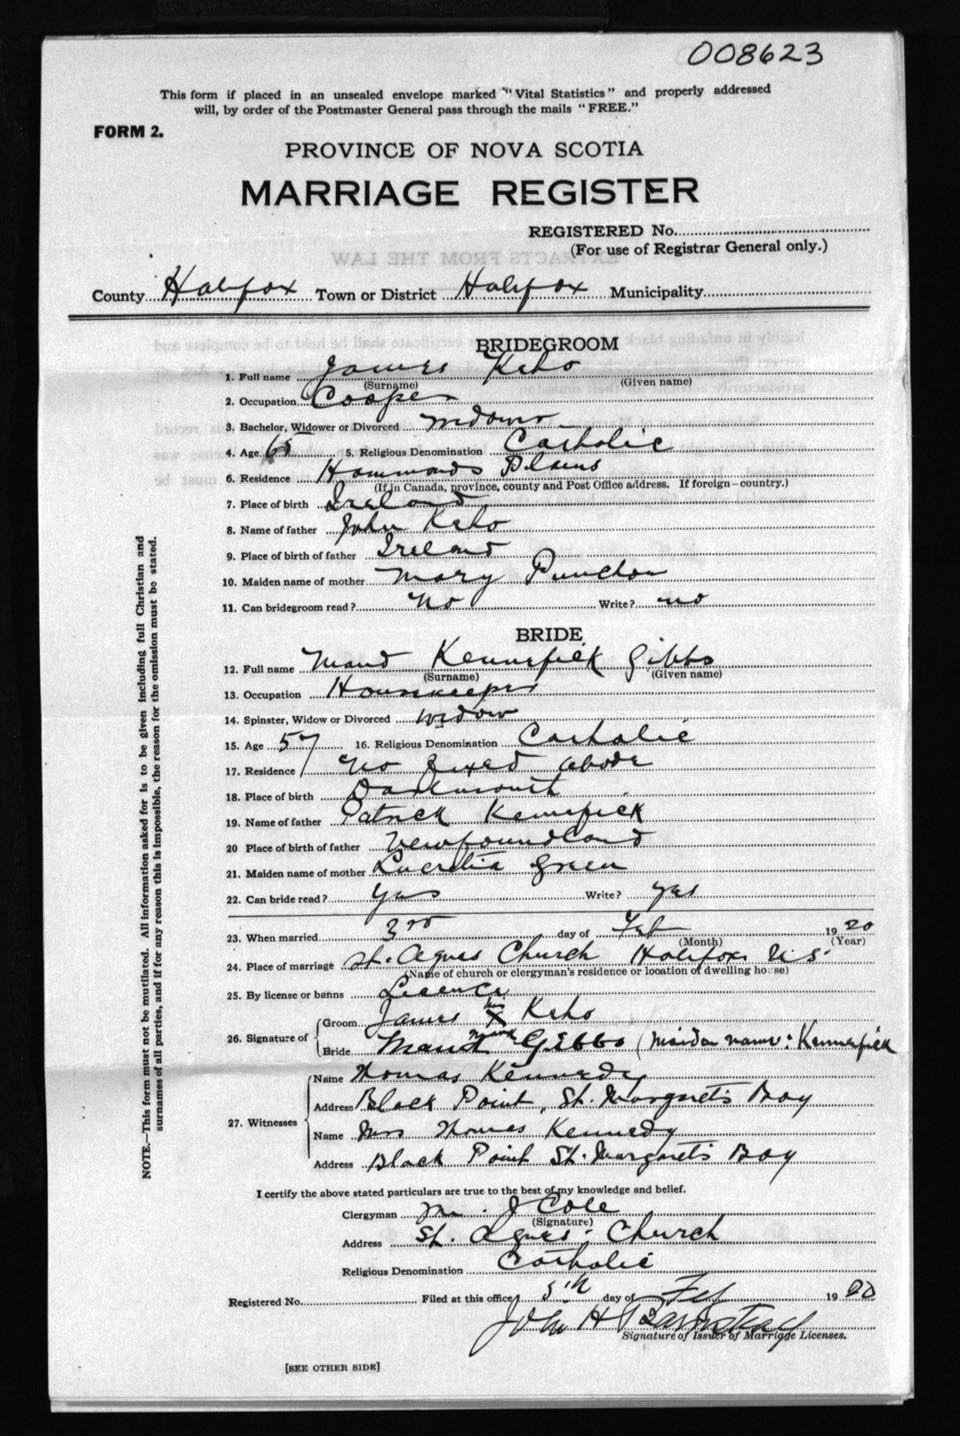 008623
This form if placed in an unsealed envelope marked "Vital Statistics" and properly addressed
will, by order of the Postmaster General pass through the mails "FREE."
FORM 2.
PROVINCE OF NOVA SCOTIA
MARRIAGE REGISTER
REGISTERED No.
(For use of Registrar General only.)
County Halifax Town or District Halifax Municipality
BRIDEGROOM
1. Full name James Keho
(Surname) (Given name)
2. Occupation Cooper
3. Bachelor, Widower or Divorced Widower
4. Age 65 5. Religious Denomination Catholic
6. Residence Hammonds Plains
(If in Canada, province, county and Post Office address. If foreign—country.)
7. Place of birth Ireland
8. Name of father John Keho
9. Place of birth of father Ireland
10. Maiden name of mother Mary
11. Can bridegroom read? No Write? no
BRIDE
12. Full name Maud Kennefick Gibbs
(Surname) (Given name)
13. Occupation Housekeeper
14. Spinster, Widow or Divorced widow
15. Age 57 16. Religious Denomination Catholic
17. Residence No fixed abode
18. Place of birth Dartmouth
19. Name of father Patrick Kennefick
20 Place of birth of father Newfoundland
21. Maiden name of mother Lucretia Green
22. Can bride read? yes Write? yes
23. When married 3rd day of Feb 1920
(Month) (Year)
24. Place of marriage St. Agnes Church Halifax N.S.
(Name of church or clergyman's residence or location of dwelling house)
25. By license or banns Licence
26. Signature of Groom James his X mark Keho
Bride Maud Gibbs (Maiden name: Kennefick
27. Witnesses Name Thomas Kennedy
Address Black Point, St. Margaret's Bay
Name Mrs Thomas Kennedy
Address Black Point St. Margaret's Bay
I certify the above stated particulars are true to the best of my knowledge and belief.
Clergyman J Cole
(Signature)
Address St. Agnes' Church
Religious Denomination Catholic
Registered No. Filed at this office 5th day of Feb 1920
John H Barnstead
Signature of Issuer of Marriage Licenses.
[SEE OTHER SIDE]
NOTE.—This form must not be mutilated. All information asked for is to be given including full Christian and
surnames of all parties, and if for any reason this is impossible, the reason for the omission must be stated.